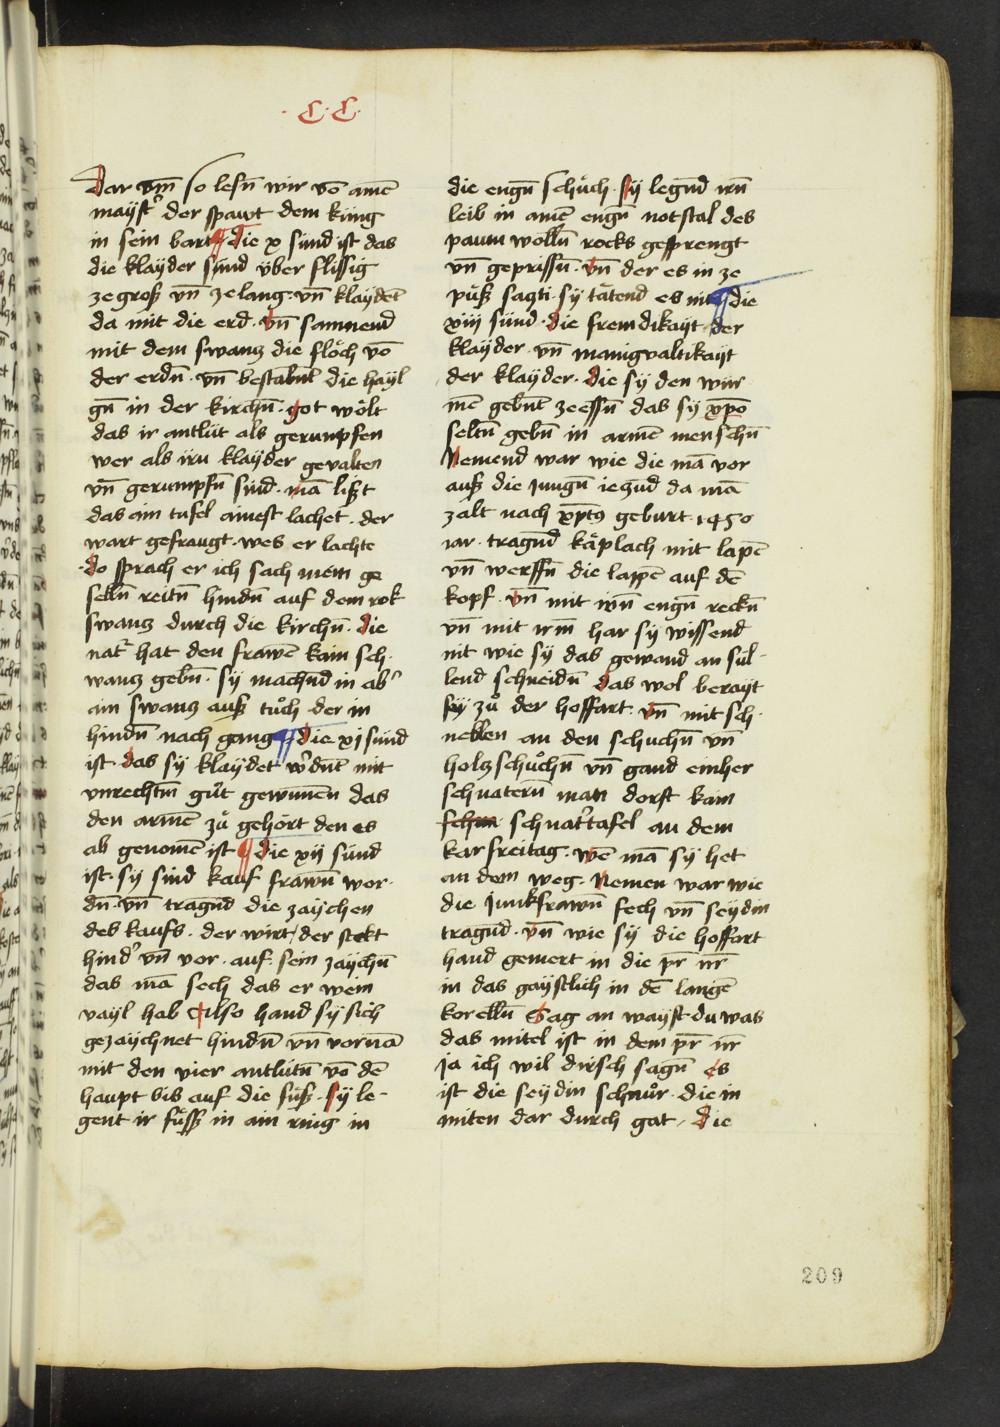 ·C·C·
Dar vm̄ so lesn̄ wir vō ainē
mayst᷑ der spawt dem küng
in sein bart ¶ Die x sünd ist das
die klayder sind über flissig
ze groß vn̄ ze lang · vn̄ klaydēt
da mit die erd · Vn̄ samnend
mit dem swantz die flöch vō
der erdn̄ · vn̄ bestabn̄t die hayl
gn̄ in der kirchn̄ · got wölt
das ir antlüt als gerumpfen
wer als iru klayder gevalten
vn̄ gerumpfn̄ sind · mā lißt
das ain tufel ainest lachet · der
wart gefraugt · wes er lachte
· Do sprach er ich sach mein ge
selln̄ reitn̄ hindn̄ auf dem rok
swantz durch die kirchn̄ · Die
nat᷑ hat den frawē kain sch
wantz gebn̄ · sy machn̄d in ab᷑
ain swantz auß tůch · der in
hindn̄ nach gang ¶ Die xj sünd
ist · das sy klaydet w᷑dn̄t mit
vnrechtm̄ gůt gewunnen das
den armē zů gehört den es
ab genomē ist ¶ Die xij sünd
ist · sy sind kauf frawn̄ wor
dn̄ · vn̄ tragn̄d die zaychen
des kaufs · der wirt / der stekt
hind᷑ vn̄ vor · auf · sein zaychn̄
das mā sech das er wein
vayl hab Also hand sy sich
gezaychnet hindn̄ vn̄ vornā
mit den vier antlütn̄ vō dē
haupt bis auf die füß · sy le-
gent ir füss in ain ring in
die engn̄ schůch · sy legn̄d irn̄
leib in ainē engn̄ notstal des
paum wolln̄ rocks gesprengt
vn̄ geprissn̄ · Vn̄ der es in ze
půß sagti · sy tätend es nit ¶ die
xiij sünd · die fremdikayt · der
klayder · vn̄ manigualtikayt
der klayder · die sy den wür
mē gebn̄t ze essn̄ das sy xp̄o
seltn̄ gebn̄ in armē menschn̄
Nemend war wie die mā vor
auß die jungn̄ iezn̄d da mā
zalt nach xp̄ts geburt · 1450
iar · tragn̄d käplach mit lapē
vn̄ werffn̄ die lappē auf dē
kopf · vn̄ mit irn̄ engn̄ reckn̄
vn̄ mit irm̄ har sy wissend
nit wie sy das gewand an sul-
lend schneidn̄ das wol berayt
sey zů der hoffart · vn̄ mit sch
neblen an den schuchn̄ vn̄
holtzschůchn̄ vn̄ gand einher
schnatern̄ man dorft kain
schnat᷑tafel an dem
karfreitag · wē mā sy het
an dem weg · Nemen war wie
die junkfrawn̄ sech vn̄ seydin
tragn̄d · vn̄ wie sy die hoffart
hand gemert in die pr̄ nr̄
in das gaystlich in dē langē
korelln̄ Sag an wayst du was
das mitel ist in dem pr̄ nr̄
ja ich wil dirsch sagn̄ es
ist die seydin schnůr · die in
miten dar durch gat / Die
209